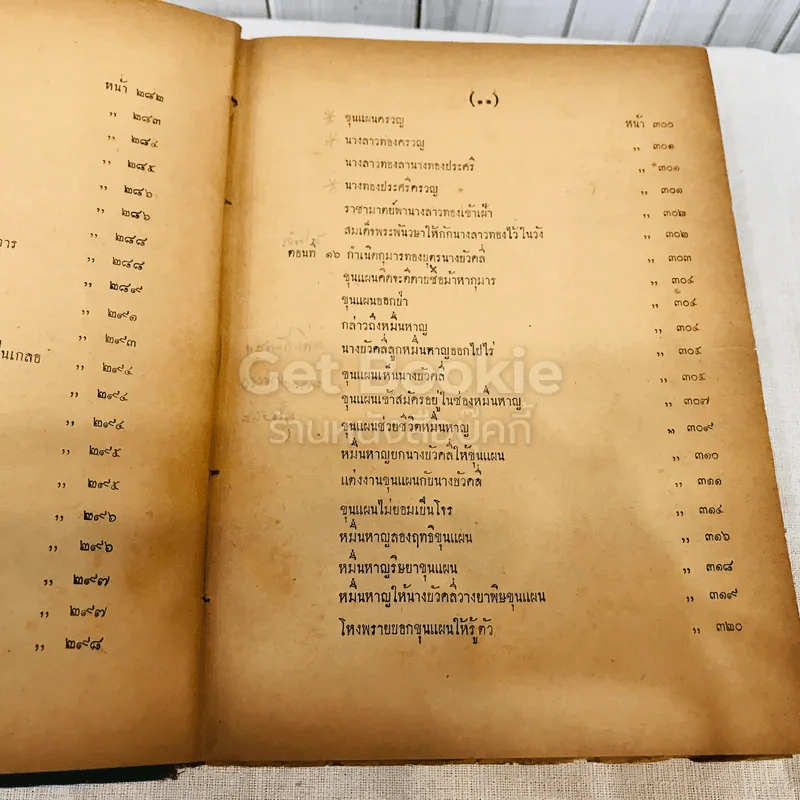 หน้า ๒๘๒
" ๒๘๓
" ๒๘๔
" ๒๘๕
" ๒๘๖
" ๒๘๖
" ๒๘๘
" ๒๘๘
" ๒๘๙
" ๒๙๑
" ๒๙๓
ป็นเกลอ " ๒๙๔
" ๒๙๔
" ๒๙๔
" ๒๙๕
" ๒๙๕
" ๒๙๖
" ๒๙๖
" ๒๙๗
" ๒๙๗
" ๒๙๘
(๑๑)
ขุนแผนครวญ หน้า ๓๐๐
นางลาวทองครวญ " ๓๐๑
นางลาวทองลานางทองประศรี " ๓๐๑
นางทองประศรีครวญ " ๓๐๑
ราชามาตย์พานางลาวทองเข้าเฝ้า " ๓๐๒
สมเด็จพระพันวษาให้กักนางลาวทองไว้ในวัง " ๓๐๒
ตอนที่ ๑๖ กำเนิดกุมารทองบุตรนางบัวคลี่ " ๓๐๓
ขุนแผนคิดจะตีดาบซื้อม้าหากุมาร " ๓๐๔
ขุนแผนออกป่า " ๓๐๔
กล่าวถึงหมื่นหาญ " ๓๐๔
นางบัวคลี่ลูกหมื่นหาญออกไปไร่ " ๓๐๕
ขุนแผนเห็นนางบัวคลี่ " ๓๐๕
ขุนแผนเข้าสมัครอยู่ในซ่องหมื่นหาญ " ๓๐๗
ขุนแผนช่วยชีวิตหมื่นหาญ " ๓๐๙
หมื่นหาญยกนางบัวคลี่ให้ขุนแผน " ๓๑๐
แต่งงานขุนแผนกับนางบัวคลี่ " ๓๑๑
ขุนแผนไม่ยอมเป็นโจร " ๓๑๔
หมื่นหาญลองฤทธิ์ขุนแผน " ๓๑๖
หมื่นหาญริษยาขุนแผน " ๓๑๘
หมื่นหาญให้นางบัวคลี่วางยาพิษขุนแผน " ๓๑๙
โหงพรายบอกขุนแผนให้รู้ตัว " ๓๒๐
Get Bookie
ร้านหนังสือบุ๊คกี้